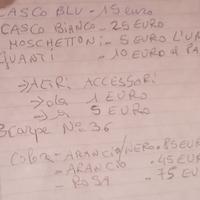 CASCO BLU - 15 euro
CASCO BIANCO - 25 EURO
MOSCHETTONI: - 5 EURO L'U
GUANTI - 10 EURO a PA
→ ALTRI ACCESSORI
→ da 1 EURO
→ a 5 EURO
Scarpe Nº 36
COLORI - ARANCIO/NERO. 85 EUR
- ARANCIO . 45 EU
- ROSA . 75 EU